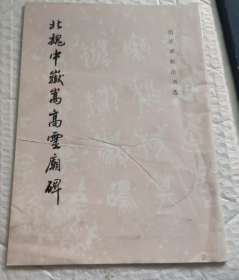 北魏中嶽嵩高靈廟碑
历代碑帖法书选